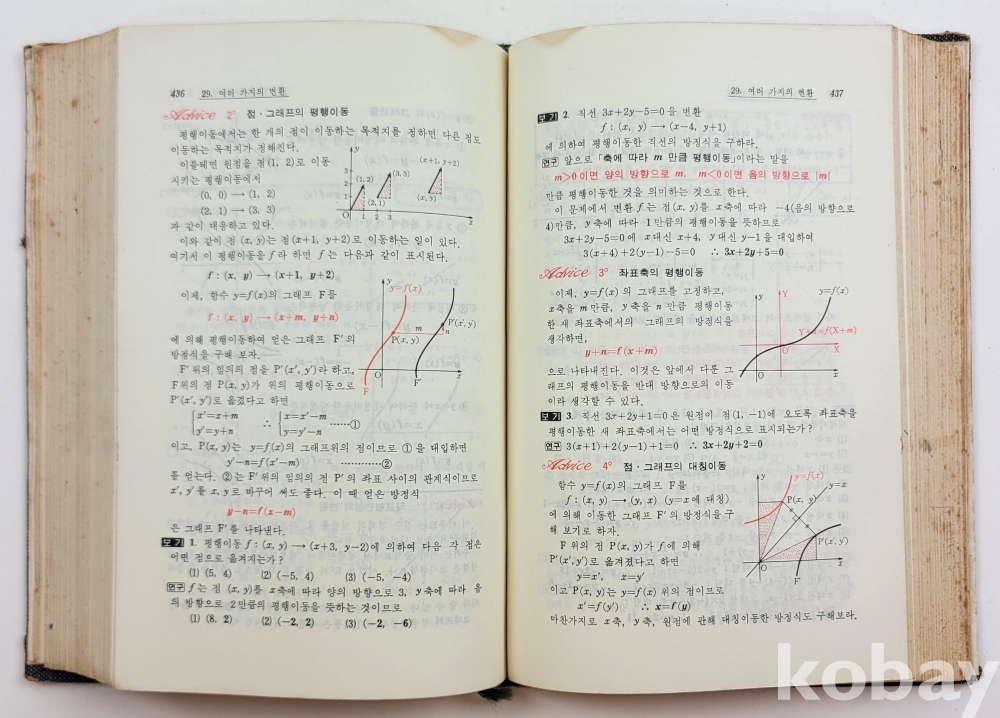 436 29. 여러 가지의 변환
Advice 2° 점·그래프의 평행이동
평행이동에서는 한 개의 점이 이동하는 목적지를 정하면 다른 점도
이동하는 목적지가 정해진다.
이를테면 원점을 점(1, 2)로 이동
시키는 평행이동에서
(0, 0) → (1, 2)
(2, 1) → (3, 3)
과 같이 대응하고 있다.
y
3
2
1
O
1 2 3
x
(1, 2)
(3, 3)
(2, 1)
(x+1, y+2)
(x, y)
이와 같이 점 (x, y)는 점(x+1, y+2)로 이동하는 일이 있다.
여기서 이 평행이동을 f라 하면 f는 다음과 같이 표시된다.
f : (x, y) → (x+1, y+2)
이제, 함수 y=f(x)의 그래프 F를
f : (x, y) → (x+m, y+n)
에 의해 평행이동하여 얻은 그래프 F′의
방정식을 구해 보자.
F′위의 임의의 점을 P′(x′, y′)라 하고,
F위의 점 P(x, y)가 위의 평행이동으로
P′(x′, y′)로 옮겼다고 하면
y
y=f(x)
m
n
P′(x′, y′)
P(x, y)
O
F
F′
x
{x′=x+m ∴ {x=x′−m
y′=y+n y=y′−n ……①
이고, P(x, y)는 y=f(x)의 그래프위의 점이므로 ①을 대입하면
y′−n=f(x′−m) …………②
를 얻는다. ②는 F′위의 임의의 점 P′의 좌표 사이의 관계식이므로
x′, y′를 x, y로 바꾸어 써도 좋다. 이 때 얻은 방정식
y−n=f(x−m)
은 그래프 F′를 나타낸다.
보기 1. 평행이동 f : (x, y) → (x+3, y−2)에 의하여 다음 각 점은
어떤 점으로 옮겨지는가?
(1) (5, 4) (2) (−5, 4) (3) (−5, −4)
연구 f는 점 (x, y)를 x축에 따라 양의 방향으로 3, y축에 따라 음
의 방향으로 2만큼의 평행이동을 뜻하는 것이므로
(1) (8, 2) (2) (−2, 2) (3) (−2, −6)
29. 여러 가지의 변환 437
보기 2. 직선 3x+2y−5=0을 변환
f : (x, y) → (x−4, y+1)
에 의하여 평행이동한 직선의 방정식을 구하라.
연구 앞으로 「축에 따라 m 만큼 평행이동」이라는 말을
m>0이면 양의 방향으로 m, m<0이면 음의 방향으로 |m|
만큼 평행이동한 것을 의미하는 것으로 한다.
이 문제에서 변환 f는 점(x, y)를 x축에 따라 −4(음의 방향으로
4)만큼, y축에 따라 1만큼의 평행이동을 뜻하므로
3x+2y−5=0에 x대신 x+4, y대신 y−1을 대입하여
3(x+4)+2(y−1)−5=0 ∴ 3x+2y+5=0
Advice 3° 좌표축의 평행이동
이제, y=f(x)의 그래프를 고정하고,
x축을 m만큼, y축을 n만큼 평행이동
한 새 좌표축에서의 그래프의 방정식을
생각하면,
y+n=f(x+m)
으로 나타내진다. 이것은 앞에서 다룬 그
래프의 평행이동을 반대 방향으로의 이동
이라 생각할 수 있다.
y
Y
y=f(x)
Y+n=f(X+m)
O′
X
O
x
보기 3. 직선 3x+2y+1=0은 원점이 점(1, −1)에 오도록 좌표축을
평행이동한 새 좌표축에서는 어떤 방정식으로 표시되는가?
연구 3(x+1)+2(y−1)+1=0 ∴ 3x+2y+2=0
Advice 4° 점·그래프의 대칭이동
함수 y=f(x)의 그래프 F를
f : (x, y) → (y, x) (y=x에 대칭)
에 의해 이동한 그래프 F′의 방정식을 구
해 보기로 하자.
F위의 점 P(x, y)가 f에 의해
P′(x′, y′)로 옮겨졌다고 하면
y=x′, x=y′
이고 P(x, y)는 y=f(x) 위의 점이므로
x′=f(y′) ∴ x=f(y)
y
y=f(x)
y=x
P(x, y)
P′(x′, y′)
O
F
x
마찬가지로 x축, y축, 원점에 관해 대칭이동한 방정식도 구해보라.
kobay